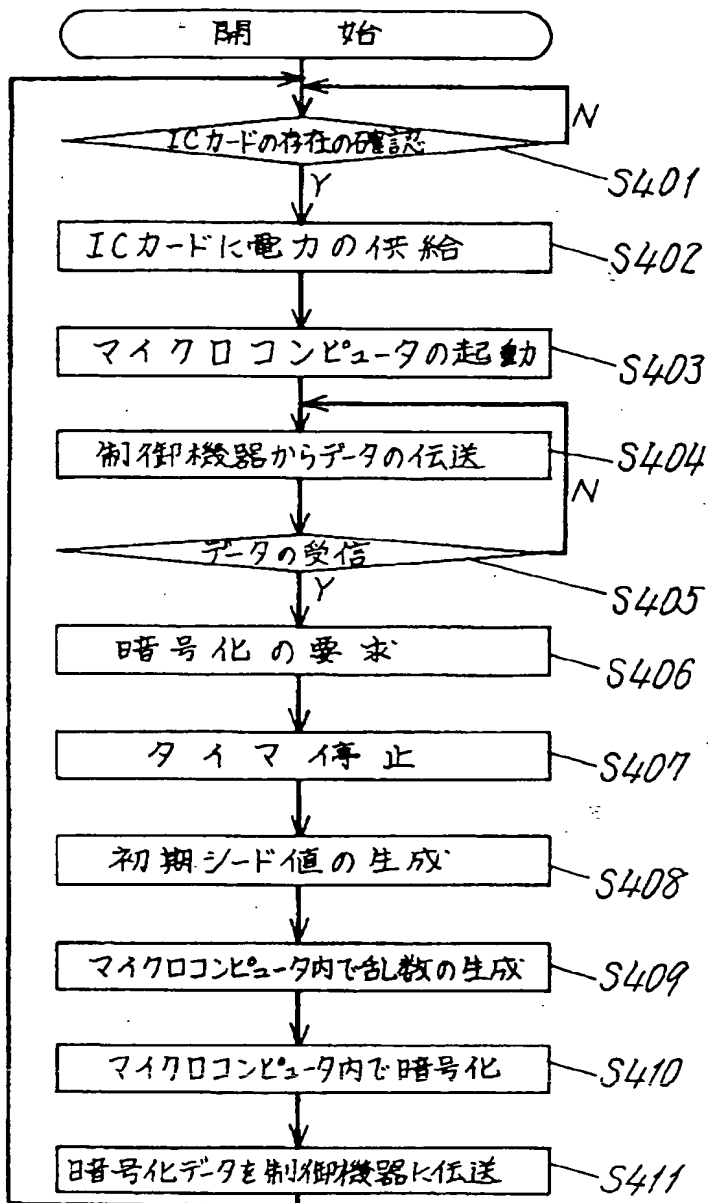 開始
N
ICカードの存在の確認
S401
Y
ICカードに電力の供給
S402
マイクロコンピュータの起動
S403
制御機器からデータの伝送
S404
N
データの受信
S405
Y
暗号化の要求
S406
タイマ停止
S407
初期シード値の生成
S408
マイクロコンピュータ内で乱数の生成
S409
マイクロコンピュータ内で暗号化
S410
暗号化データを制御機器に伝送
S411